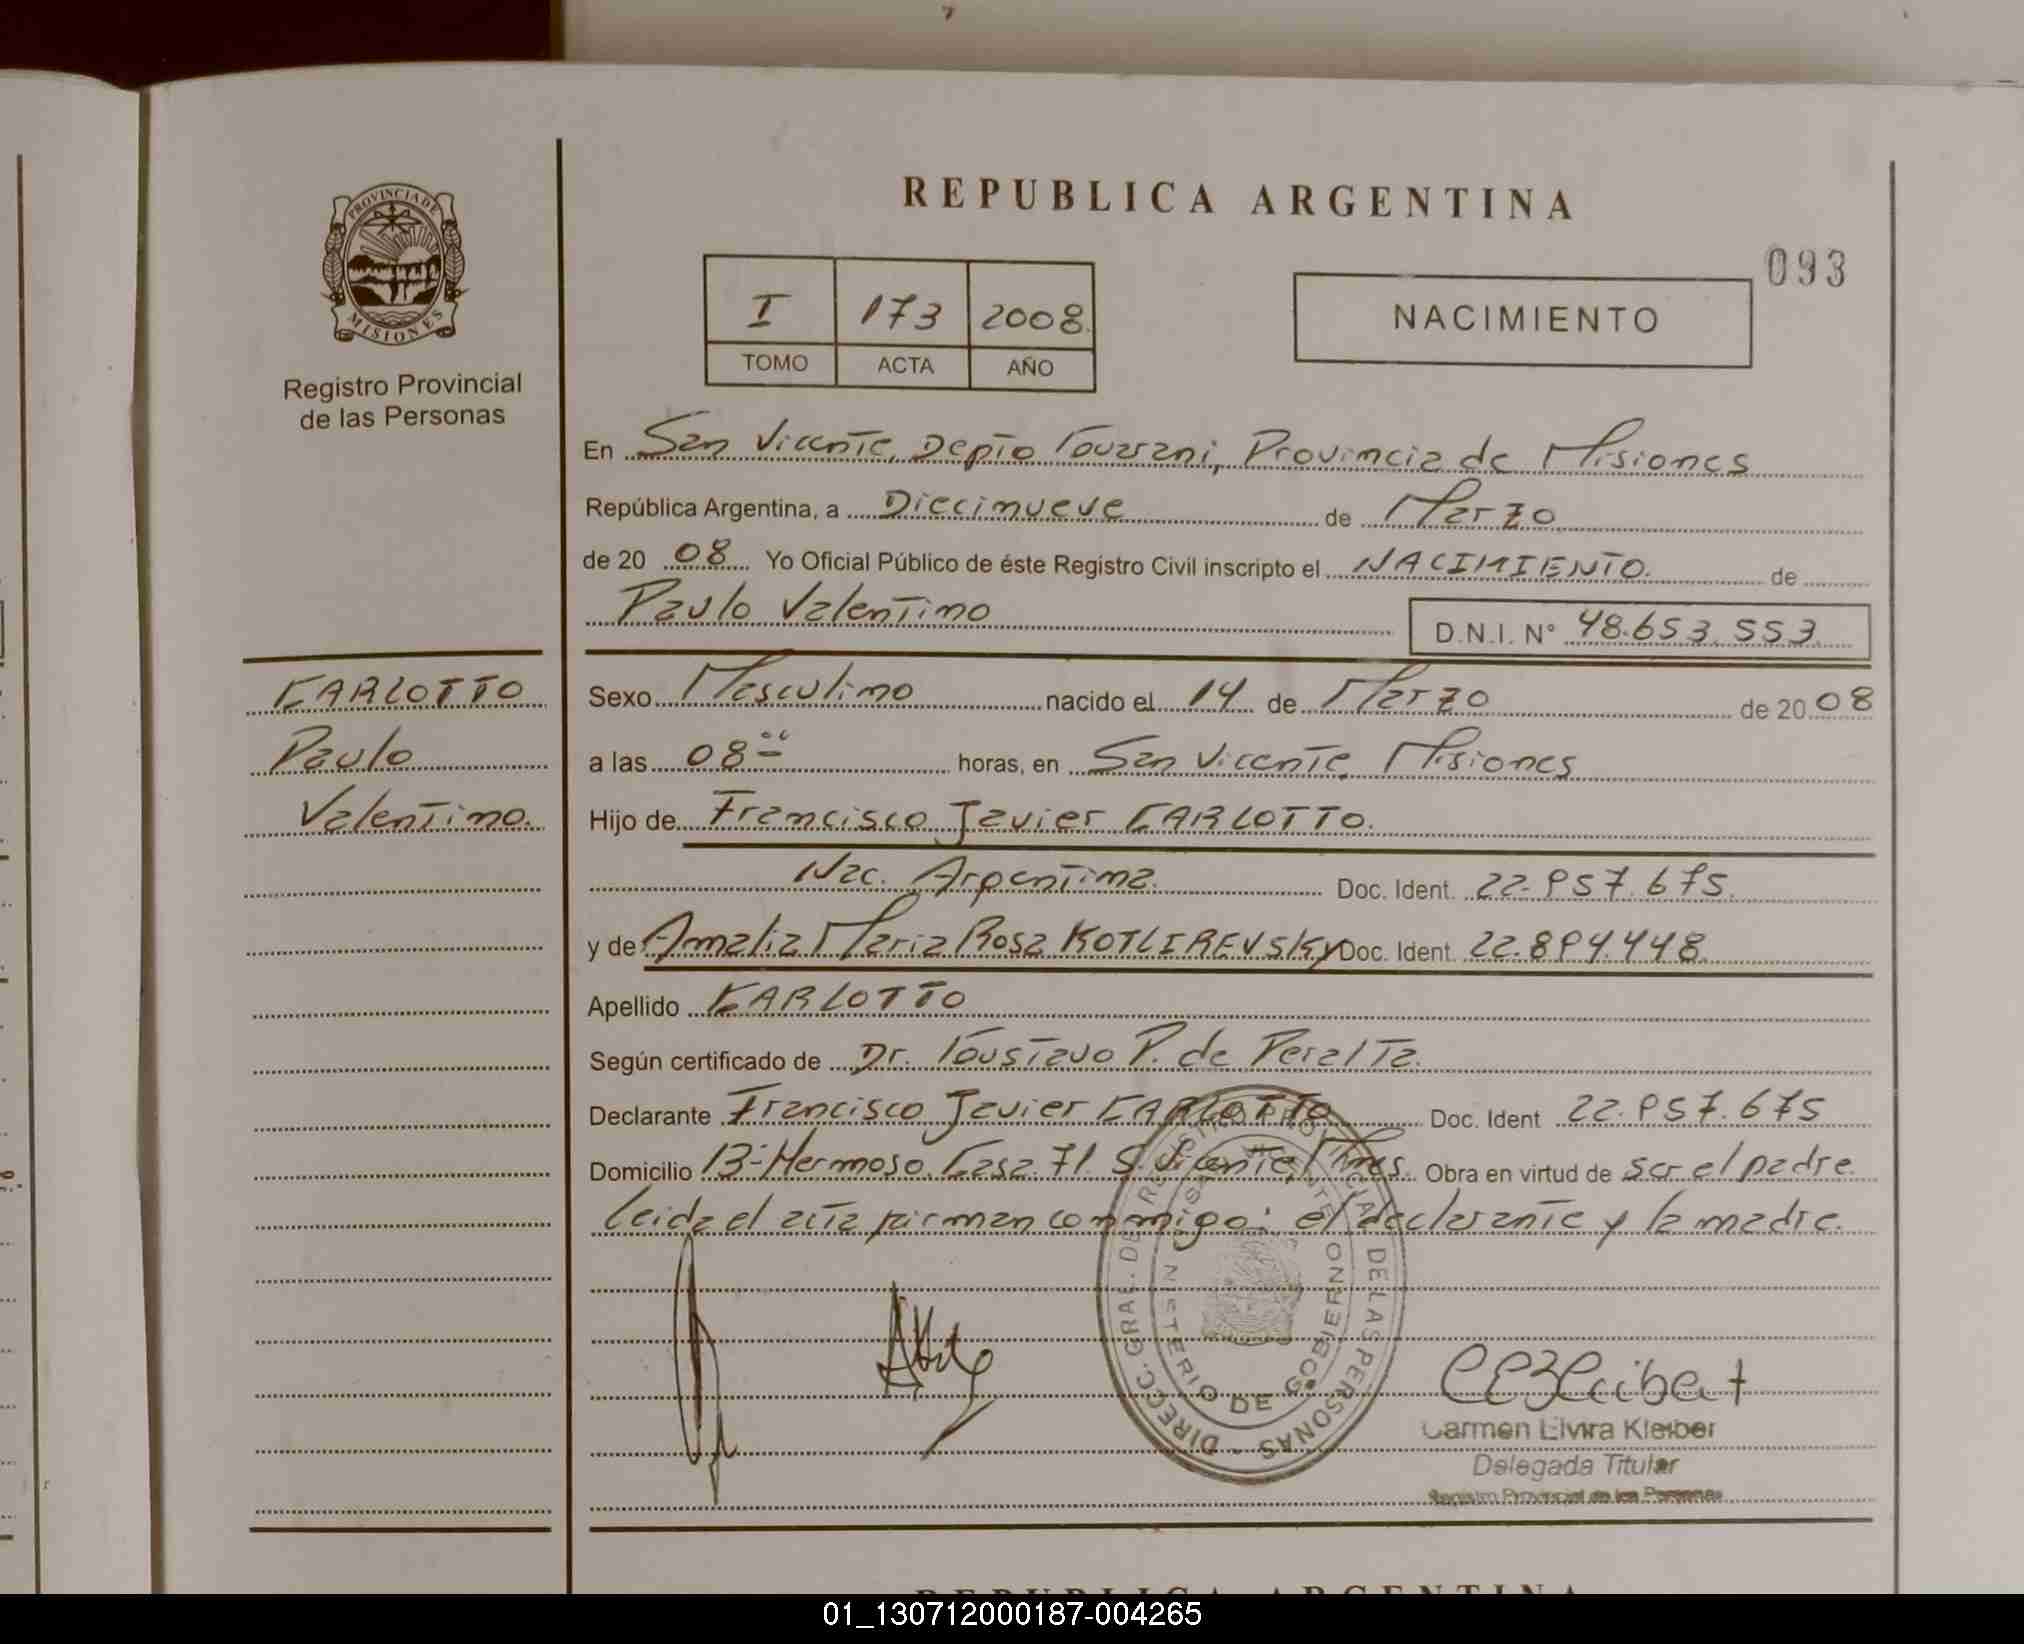 REPUBLICA ARGENTINA
093
PROVINCIA DE
MISIONES
Registro Provincial
de las Personas
I 173 2008
TOMO ACTA AÑO
NACIMIENTO
En San Vicente, Depto Guarani, Provincia de Misiones
República Argentina, a Diecinueve de Marzo
de 20 08 Yo Oficial Público de éste Registro Civil inscripto el NACIMIENTO. de
Paulo Valentino
D.N.I. N° 48.653.553
CARLOTTO
Paulo
Valentino.
Sexo Masculino nacido el 14 de Marzo de 20 08
a las 08 00 horas, en San Vicente, Misiones
Hijo de Francisco Javier CARLOTTO.
Nac. Argentina. Doc. Ident. 22.957.675.
y de Amalia Maria Rosa KOTLIREVSKY Doc. Ident. 22.894.448
Apellido CARLOTTO
Según certificado de Dr. Gustavo P. de Peralta.
Declarante Francisco Javier CARLOTTO Doc. Ident 22.957.675
Domicilio Bº Hermoso. Casa. 71. S. Vicente, Mnes. Obra en virtud de ser el padre.
Leida el acta firman conmigo: el declarante y la madre.
DIRECC. GRAL. DE REGISTRO PROVINCIAL DE LAS PERSONAS -
MINISTERIO DE GOBIERNO
Carmen Elvira Kleiber
Delegada Titular
Registro Provincial de las Personas
REPUBLICA ARGENTINA
01_130712000187-004265